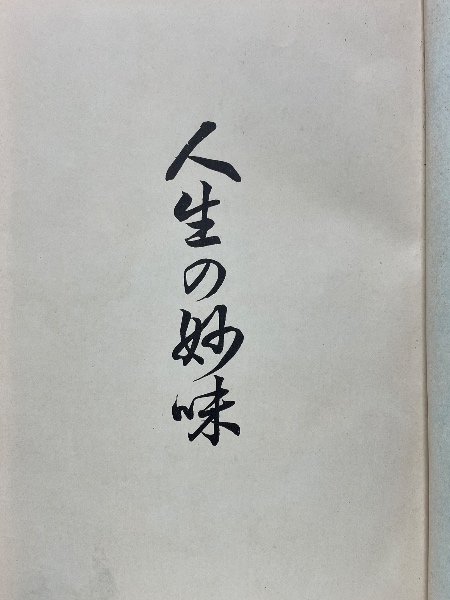 人生の妙味